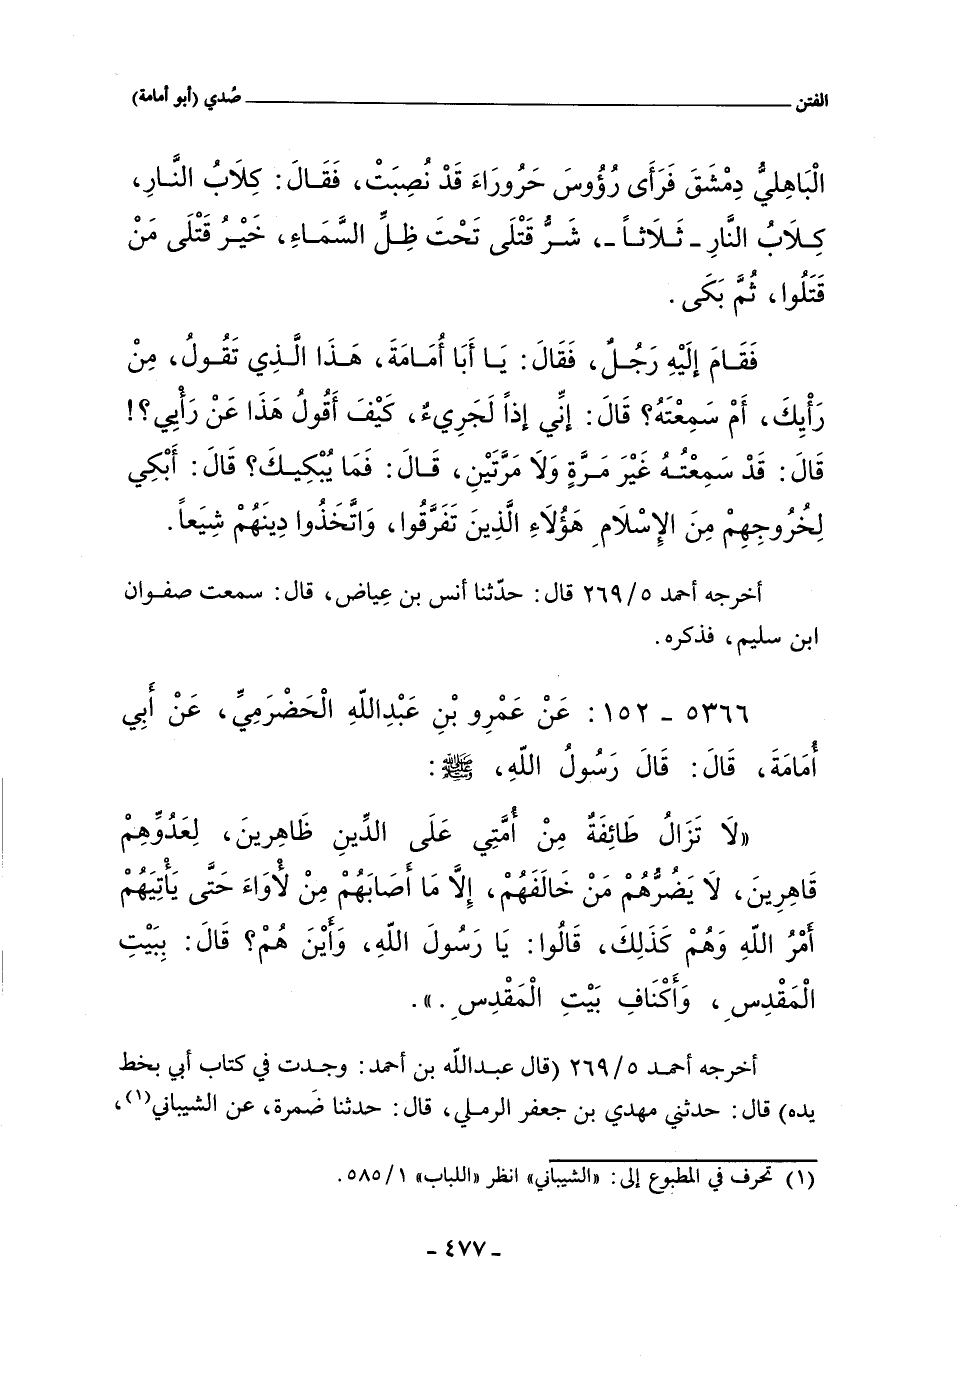 الفتن ــــــ صُدي (أبو أمامة)
الْبَاهِلِيُّ دِمْشَقَ فَرَأَى رُؤُوسَ حَرُورَاءَ قَدْ نُصِبَتْ، فَقَالَ: كِلَابُ النَّارِ،
كِلَابُ النَّارِ ـ ثَلَاثاً ـ، شَرُّ قَتْلَى تَحْتَ ظِلِّ السَّمَاءِ، خَيْرُ قَتْلَى مَنْ
قَتَلُوا، ثُمَّ بَكَى.
فَقَامَ إِلَيْهِ رَجُلٌ، فَقَالَ: يَا أَبَا أُمَامَةَ، هَذَا الَّذِي تَقُولُ، مِنْ
رَأْيِكَ، أَمْ سَمِعْتَهُ؟ قَالَ: إِنِّي إِذاً لَجَرِيءٌ، كَيْفَ أَقُولُ هَذَا عَنْ رَأْيِي؟!
قَالَ: قَدْ سَمِعْتُهُ غَيْرَ مَرَّةٍ وَلَا مَرَّتَيْنِ، قَالَ: فَمَا يُبْكِيكَ؟ قَالَ: أَبْكِي
لِخُرُوجِهِمْ مِنَ الإِسْلَامِ هَؤُلَاءِ الَّذِينَ تَفَرَّقُوا، وَاتَّخَذُوا دِينَهُمْ شِيَعاً.
أخرجه أحمد ٢٦٩/٥ قال: حدّثنا أنس بن عِياض، قال: سمعت صفوان
ابن سليم، فذكره.
٥٣٦٦ ـ ١٥٢: عَنْ عَمْرِو بْنِ عَبْدِاللّهِ الْحَضْرَمِيِّ، عَنْ أَبِي
أُمَامَةَ، قَالَ: قَالَ رَسُولُ اللّهِ، ﷺ:
«لَا تَزَالُ طَائِفَةٌ مِنْ أُمَّتِي عَلَى الدِّينِ ظَاهِرِينَ، لِعَدُوِّهِمْ
قَاهِرِينَ، لَا يَضُرُّهُمْ مَنْ خَالَفَهُمْ، إِلَّا مَا أَصَابَهُمْ مِنْ لأْوَاءَ حَتَّى يَأْتِيَهُمْ
أَمْرُ اللّهِ وَهُمْ كَذَلِكَ، قَالُوا: يَا رَسُولَ اللهِ، وَأَيْنَ هُمْ؟ قَالَ: بِبَيْتِ
الْمَقْدِسِ، وَأَكْنَافِ بَيْتِ الْمَقْدِسِ.».
أخرجه أحمد ٢٦٩/٥ (قال عبداللّه بن أحمد: وجدت في كتاب أبي بخط
يده) قال: حدثني مهدي بن جعفر الرملي، قال: حدثنا ضَمرة، عن الشيباني(١)،
(١) تحرف في المطبوع إلى: «الشيباني» انظر «اللباب» ٥٨٥/١.
ـ ٤٧٧ ـ